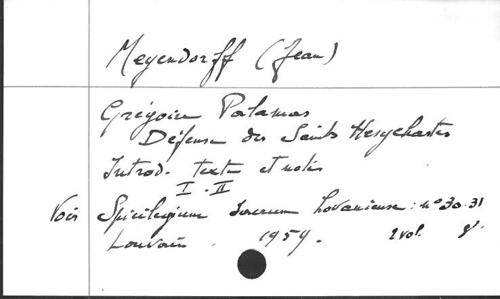 Meyendorff (Jean)
Grégoire Palamas
Défense des Saints Hesychastes
Introd. texte et notes
I - II
Voir Spicilegium Sacrum Lovaniense : n° 30-31
Louvain . 1959 . 2 vol. 8°